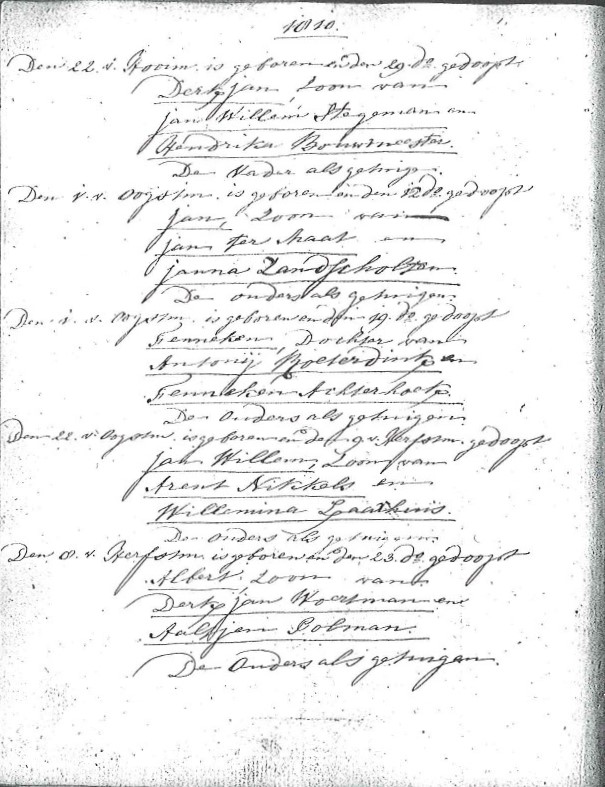 1810.
Den 22 v. Hooim. is geboren en den 29 do. gedoopt
Derk jan, Zoon van
jan Willem Stegeman en
Hendrika Bouwmeester.
De Vader als getuige.
Den v. Oogstm. is geboren en den 12 do. gedoopt
Jan, Zoon van
jan ter Maat en
janna Zandscholten
De ouders als getuigen.
Den v. Oogstm. is geboren en den 19 do. gedoopt
Fenneken, Dochter van
Antonij Roeterdink en
Fenneken Achterhoek
De Ouders als getuigen.
Den 22 v. Oogstm. is geboren en den 9 v. Herfstm. gedoopt
Jan Willem, Zoon van
Arent Nikkels en
Willemina
De Ouders als getuigen.
Den 8 v. Herfstm. is geboren en den 23 do. gedoopt
Albert Zoon van
Derk jan Woertman en
Aaltjen Golman.
De Ouders als getuigen.